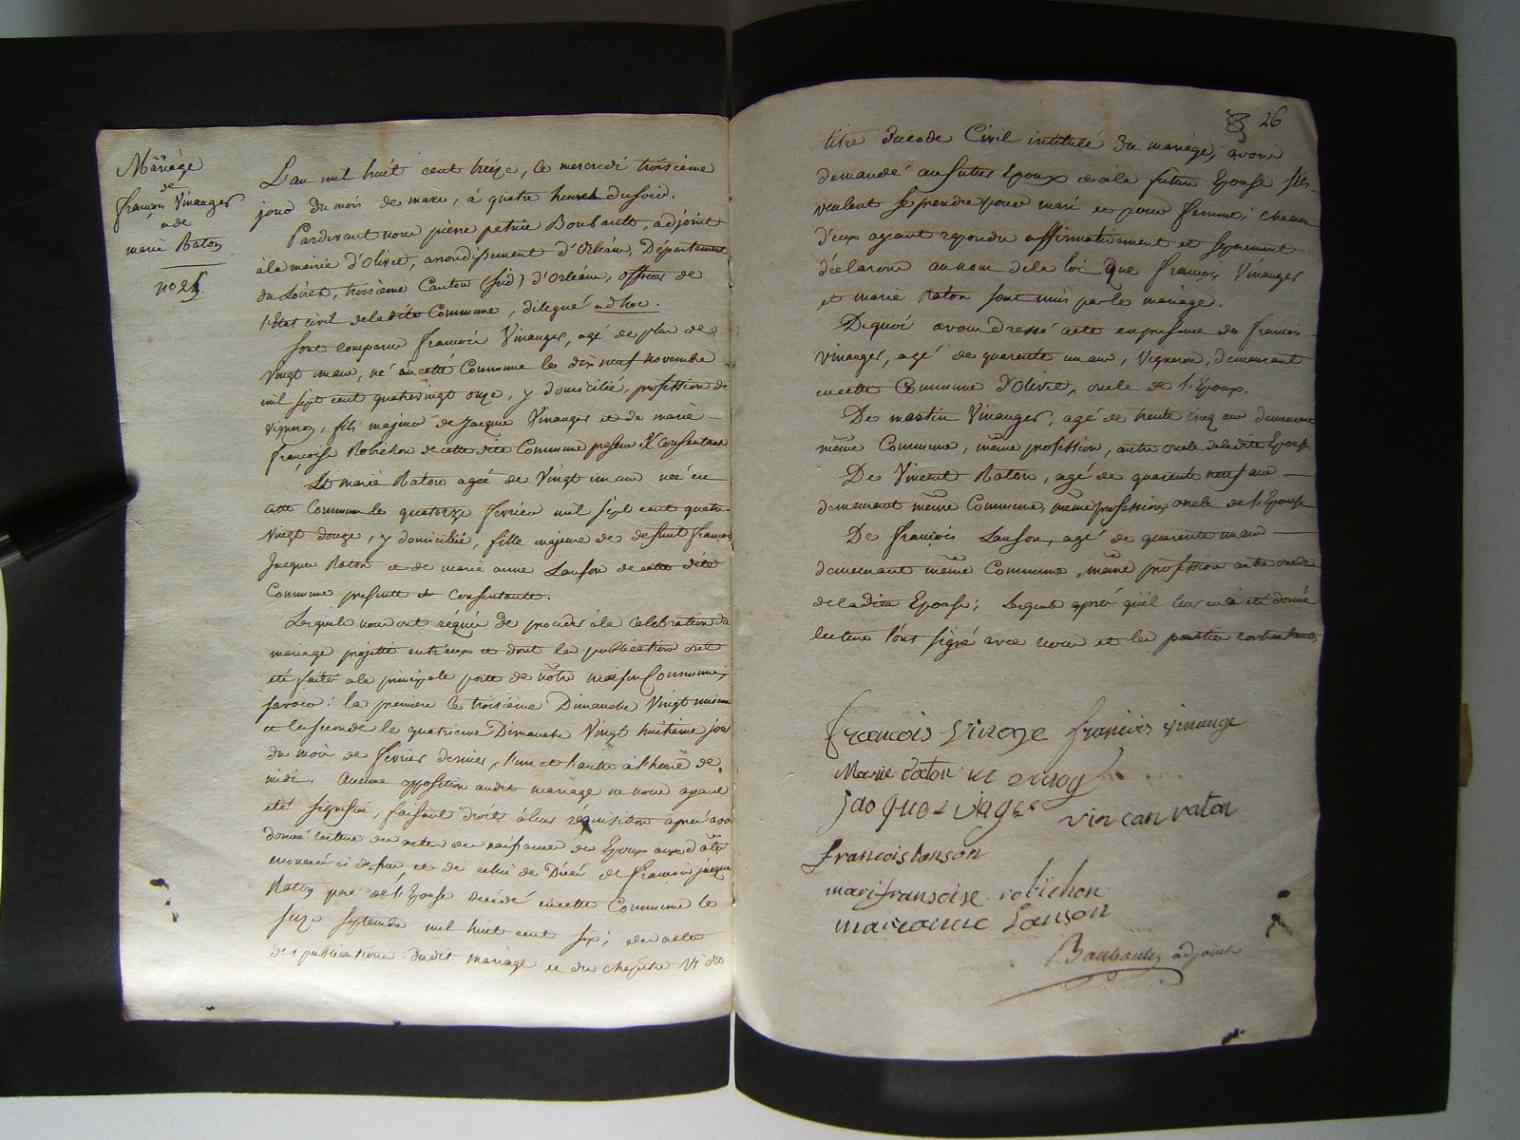 Mariage
de
françois Vinanger
a de
marie Raton
no 25
L'an mil huit cent treize, le mercredi troisieme
jour du mois de mars, à quatre heures du soir.
Pardevant nous pierre patrice Boubault, adjoint
à la mairie d'Olivet, arrondissement d'Orléans, Département
du Loiret, troisieme Canton (sud) d'Orléans, officier de
l'Etat civil de la dite Commune, délégué ad hoc.
Sont comparus françois Vinanger, agé de plus de
vingt un ans, né en cette Commune le dix neuf Novembre
mil sept cent quatrevingt onze, y domicilié, profession de
vigneron, fils majeur de Jacque Vinanger et de marie
françoise Robichon de cette dite Commune present & consentant
Et marie Raton agée de Vingt un ans née en
cette Commune le quatorze fevrier mil sept cent quatre
Vingt douze, y domiciliée, fille majeure de defunt françois
Jacques Raton et de marie anne Lanson de cette dite
Commune presente et consentante.
Lesquels nous ont requis de proceder à la celebration du
mariage projetté entr'eux et dont les publications ont
été faites a la principale porte de notre maison Commune,
savoir: la premiere le troisieme Dimanche Vingt unieme
et la seconde le quatrieme Dimanche Vingt huitieme jour
du mois de fevrier dernier, l'une et l'autre à l'heure de
midi. Aucune opposition audit mariage ne nous ayant
eté signifiée, faisant droit à leur réquisition après avoir
donné lecture des actes de naissance des Epoux aux dates
enoncés ci dessus, et de celui de Décès de françois jacque
Raton pere de l'Epouse décédé en cette Commune le
seize septembre mil huit cent six; des actes
de publications dudit mariage et du chapitre VI du
26
titre du code Civil intitulé Du mariage, avons
demandé au futur Epoux et à la future Epouse s'ils
veulent se prendre pour mari et pour femme; chacun
d'eux ayant repondu affirmativement et separement
déclarons au nom de la loi Que françois Vinanger
et marie Raton sont unis par le mariage.
De quoi avons dressé acte en presence de francois
Vinanger, agé de quarente un ans, Vigneron, demeurant
en cette Commune d'Olivet, oncle de l'Epoux.
De martin Vinanger, agé de trente cinq ans demeurant
même Commune, même profession, autre oncle de la dite Epoux
De Vincent Raton, agé de quarente neuf ans
demeurant même Commune, même profession, oncle de l'Epouse
De françois Lanson, agé de quarente un ans
demeurant même Commune, même profession autre oncle
de la dite Epouse; lesquels après qu'il leur en a été donné
lecture l'ont signé avec nous et les parties contractantes
francois vinauge
Marie raton
Jacques vinger vincan raton
francois lanson
mari fransoise robichon
marianne Lanson
Boubault adjoint